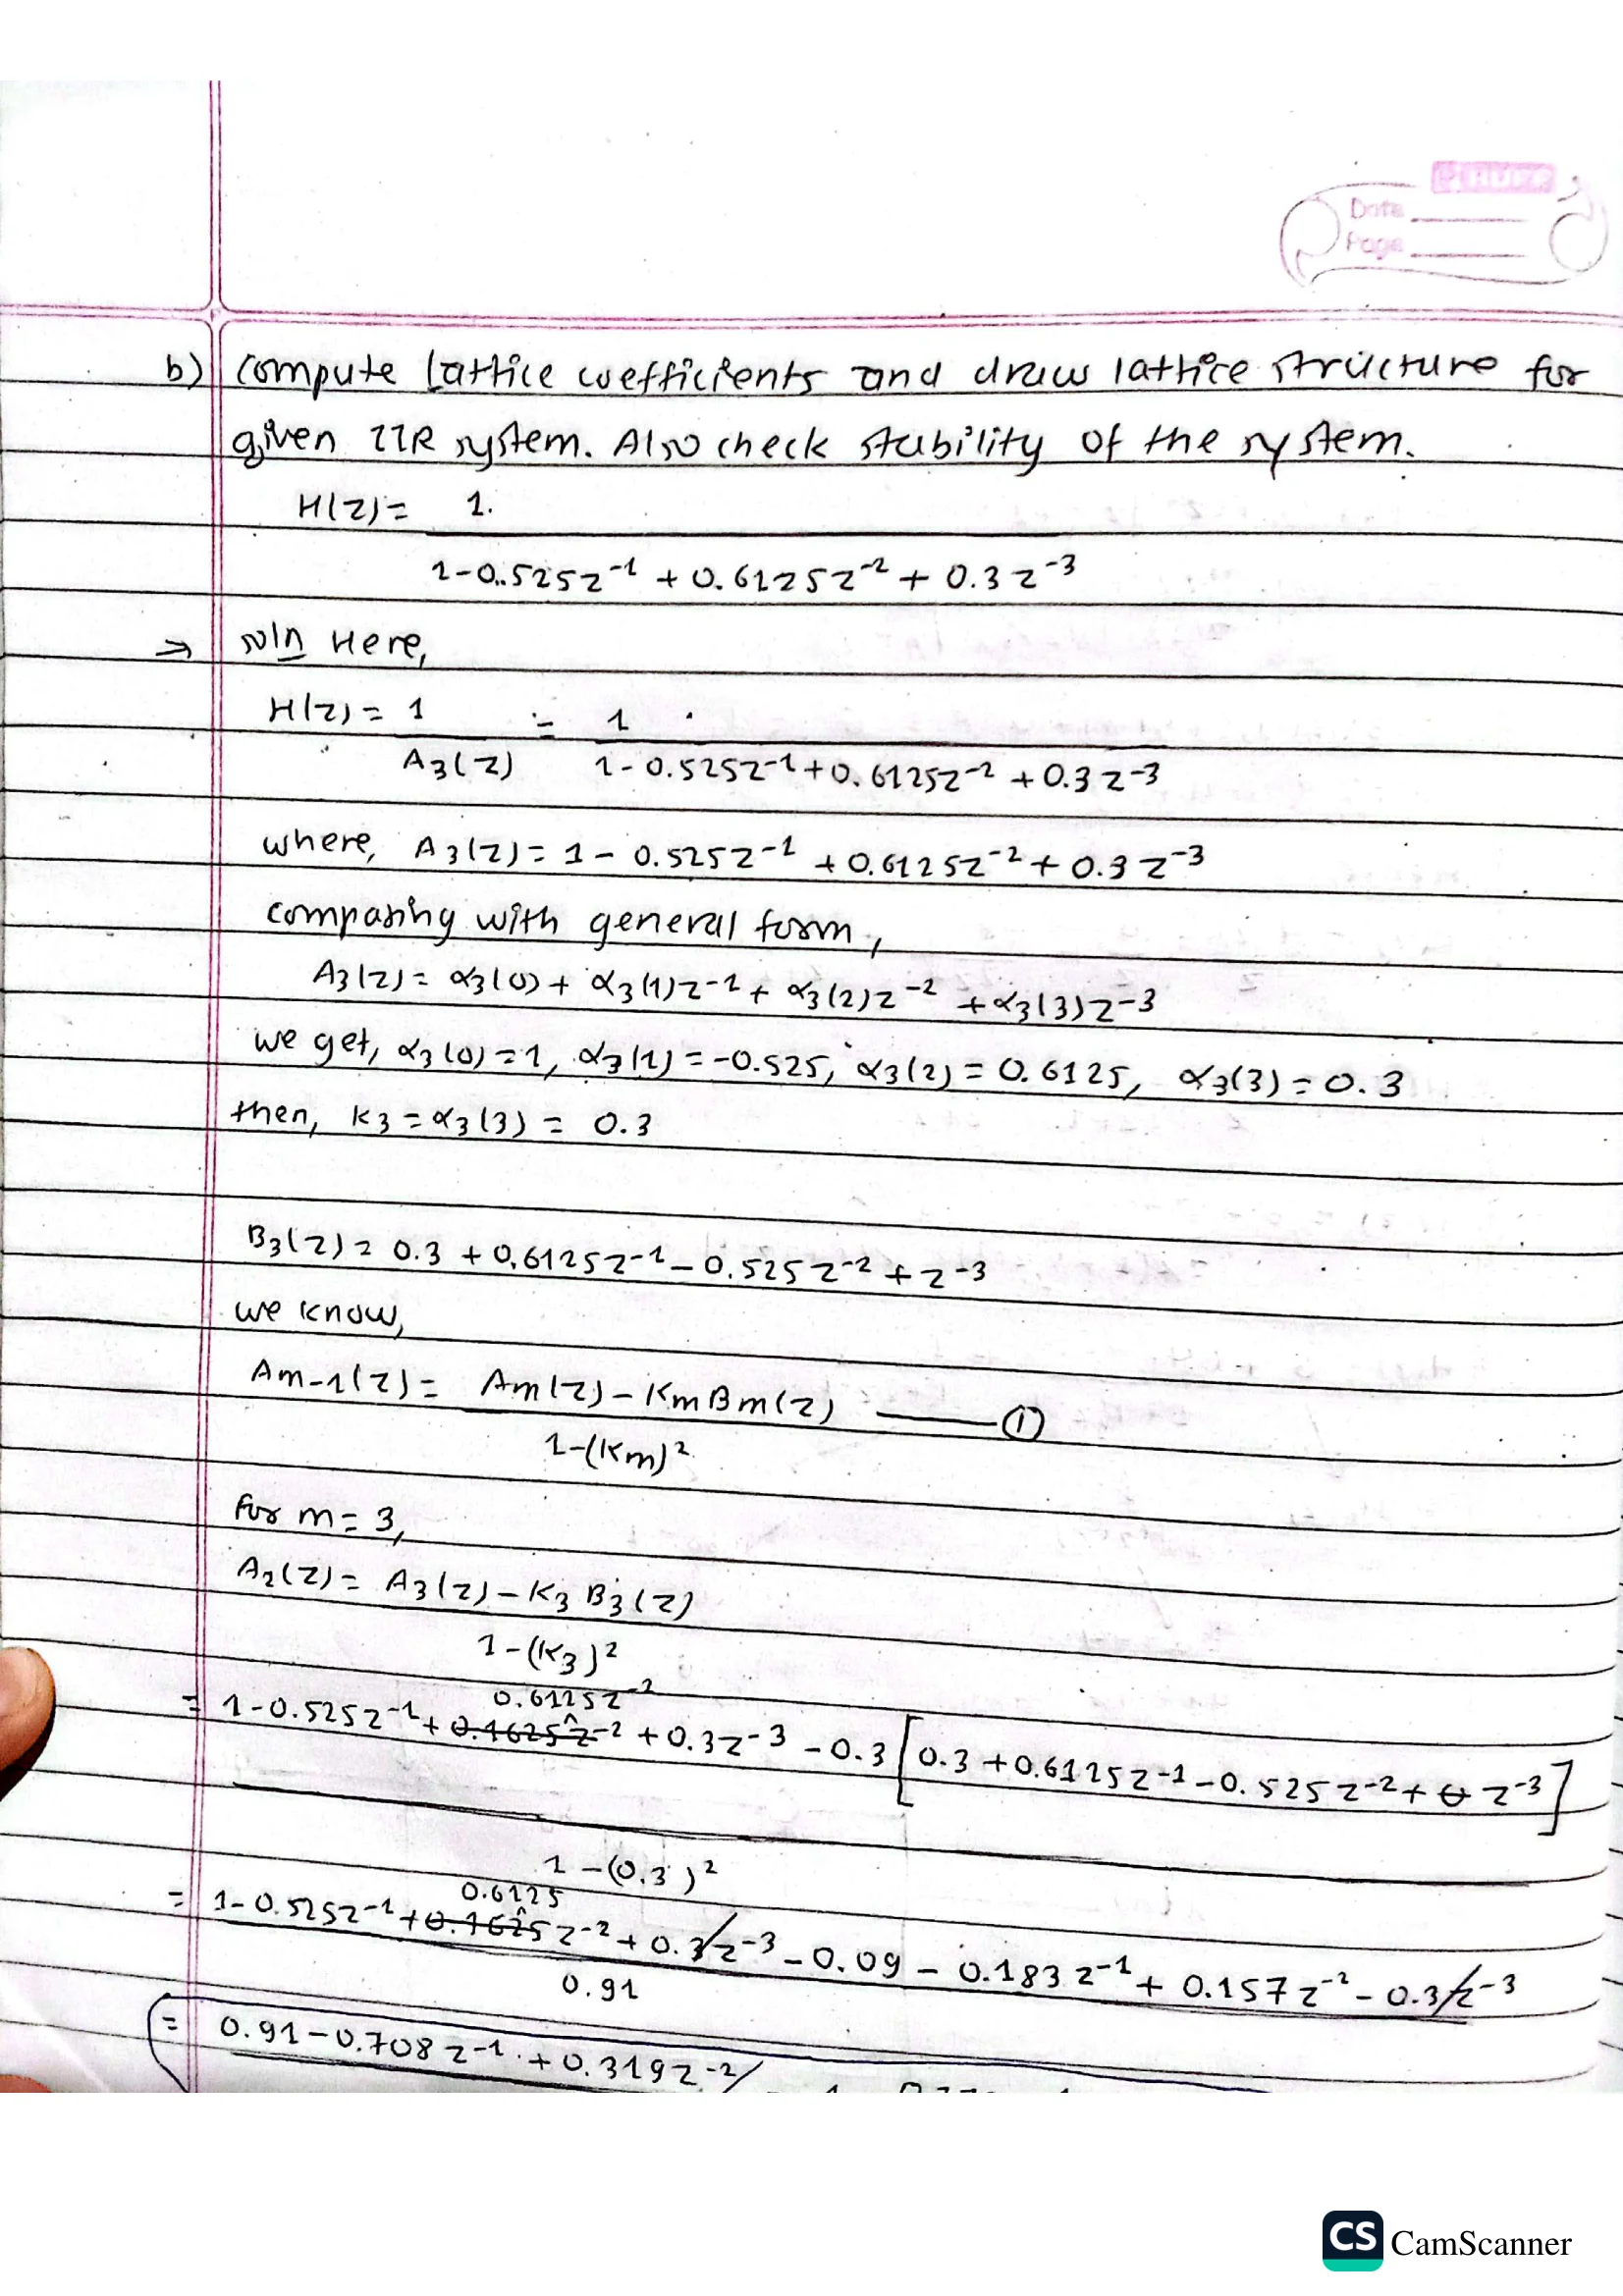 Date
Page
b) compute Lattice coefficients and draw lattice structure for
given IIR system. Also check stability of the system.
H(z) = 1.
1-0.525z⁻¹ + 0.6125z⁻² + 0.3z⁻³
⇒ soln Here,
H(z) = 1 = 1
A₃(z) 1-0.525z⁻¹+0.6125z⁻² + 0.3z⁻³
where, A₃(z) = 1 - 0.525z⁻¹ + 0.6125z⁻² + 0.3z⁻³
comparing with general form,
A₃(z) = α₃(0) + α₃(1)z⁻¹ + α₃(2)z⁻² + α₃(3)z⁻³
we get, α₃(0) = 1, α₃(1) = -0.525, α₃(2) = 0.6125, α₃(3) = 0.3
then, K₃ = α₃(3) = 0.3
B₃(z) = 0.3 + 0.6125z⁻¹ - 0.525z⁻² + z⁻³
we know,
Am-1(z) = Am(z) - Km Bm(z) —— ①
1-(Km)²
For m = 3,
A₂(z) = A₃(z) - K₃ B₃(z)
1-(K₃)²
0.6125z⁻²
= 1-0.525z⁻¹ + 0.1625z⁻² + 0.3z⁻³ - 0.3 [0.3 + 0.6125z⁻¹ - 0.525z⁻² + z⁻³]
1-(0.3)²
0.6125
= 1-0.525z⁻¹ + 0.1625z⁻² + 0.3z⁻³ - 0.09 - 0.183z⁻¹ + 0.157z⁻² - 0.3z⁻³
0.91
= 0.91 - 0.708z⁻¹ + 0.319z⁻²
CS CamScanner